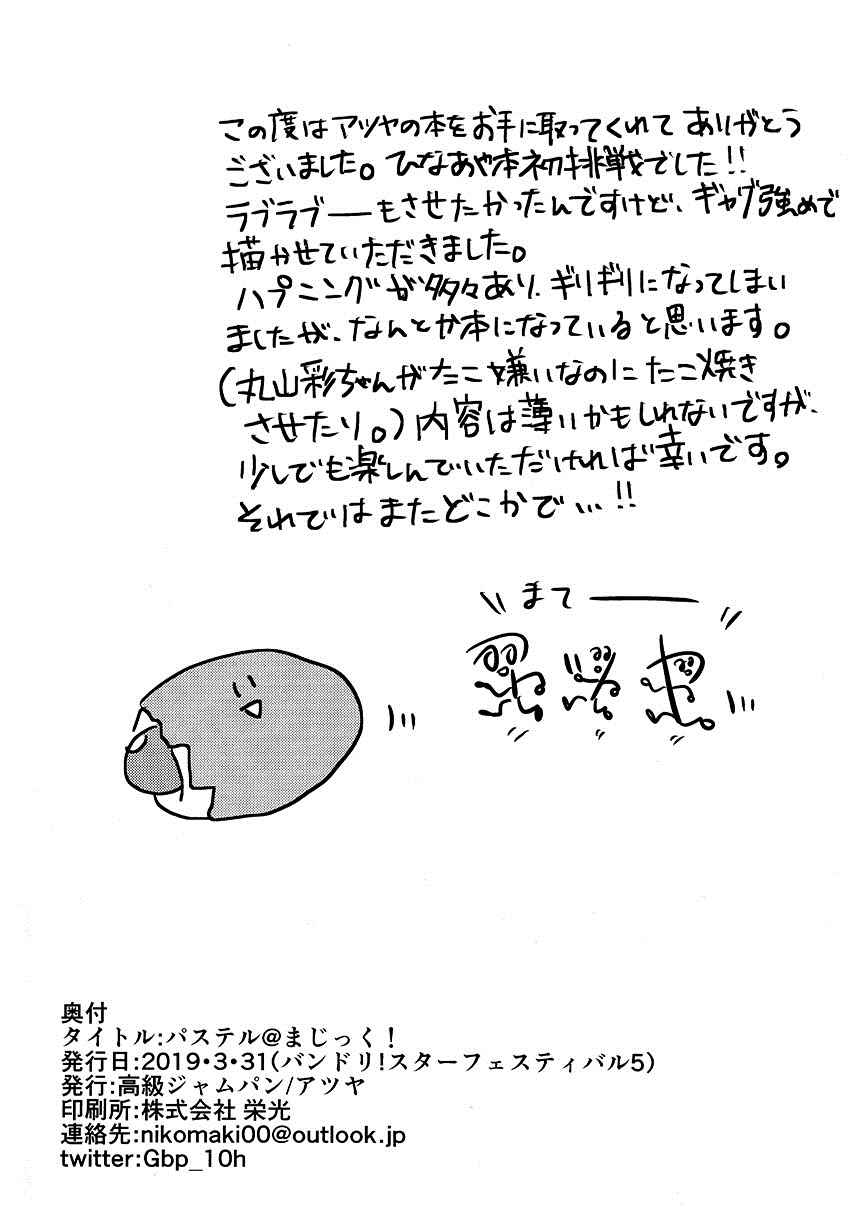 この度はアツヤの本をお手に取ってくれてありがとう
ございました。ひなあや本初挑戦でした!!
ラブラブーーもさせたかったんですけど、ギャグ強めで
描かせていただきました。
ハプニングが多々あり、ギリギリになってしまい
ましたが、なんとか本になっていると思います。
(丸山彩ちゃんがたこ嫌いなのにたこ焼き
させたり。)内容は薄いかもしれないですが、
少しでも楽しんでいただければ幸いです。
それではまたどこかで…!!
まてーー
奥付
タイトル:パステル@まじっく!
発行日:2019・3・31(バンドリ!スターフェスティバル5)
発行:高級ジャムパン/アツヤ
印刷所:株式会社 栄光
連絡先:nikomaki00@outlook.jp
twitter:Gbp_10h